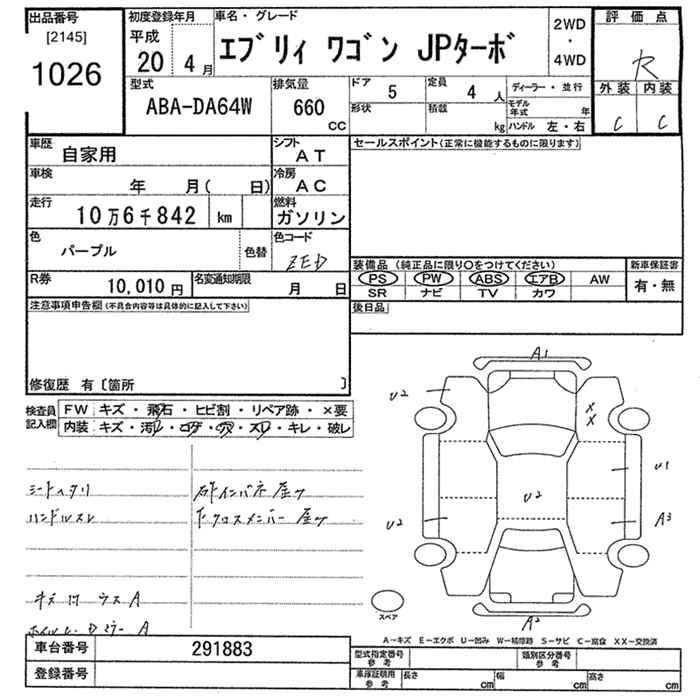 出品番号
[2145]
1026
初度登録年月
平成
20 4月
車名・グレード
エブリィ ワゴン JPターボ
2WD
・
4WD
評価点
R
外装 内装
C C
型式
ABA-DA64W
排気量
660
CC
ドア 5
定員 4人
形状
積載
kg
ディーラー・並行
モデル年式 年
ハンドル 左・右
車歴
自家用
シフト
AT
車検
年 月( 日)
冷房
AC
走行
10万6千842 km
燃料
ガソリン
色
パープル
色替
色コード
ZED
R券
10,010円
名変通知期限
月 日
セールスポイント(正常に機能するものに限ります)
装備品(純正品に限り○をつけてください)
PS PW ABS エアB AW
SR ナビ TV カワ
新車保証書
有・無
後日品
注意事項申告欄(不具合内容等は具体的に記入して下さい)
修復歴 有〔箇所 〕
検査員
記入欄
FW キズ・飛石・ヒビ割・リペア跡・×要
内装 キズ・汚レ・コゲ・穴・スレ・キレ・破レ
シートヘタリ
ハンドルスレ
右インパネ 座サ
下クロスメンバー 座サ
A
A
A1
U2
X
X
U1
U2
U2
A3
A2
スペア
A-キズ E-エクボ U-凹み W-補修跡 S-サビ C-腐食 XX-交換済
車台番号
291883
登録番号
型式指定番号
参考
類別区分番号
参考
車庫証明用
参考
長さ cm
幅 cm
高さ cm